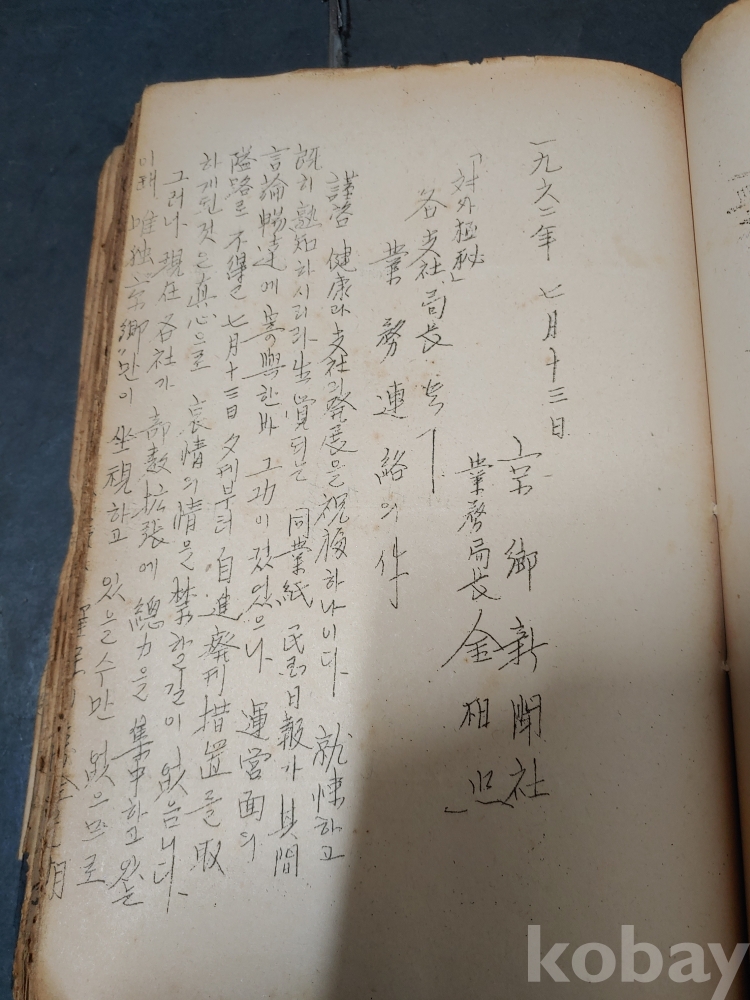 一九六二年 七月十三日
京鄕新聞社
業務局長 金相
「対外極秘」
各支社局長
業務連絡의件
謹啓 健康과 支社의 発展을 祝福하나이다. 就悚하고
旣히 熟知하시리라 生覚되는 同業紙 民国日報가 其間
言論暢達에 寄與한바 그功이 컸었으나 運営面의
隘路로 不得已 七月十三日 夕刊부터 自進廃刊措置를 取
하게된것은 眞心으로 哀惜의情을 禁할길이 없읍니다.
그러나 現在各社가 部数拡張에 總力을 集中하고있는
이때 唯独 京鄕만이 坐視하고 있을수만 없으므로
kobay